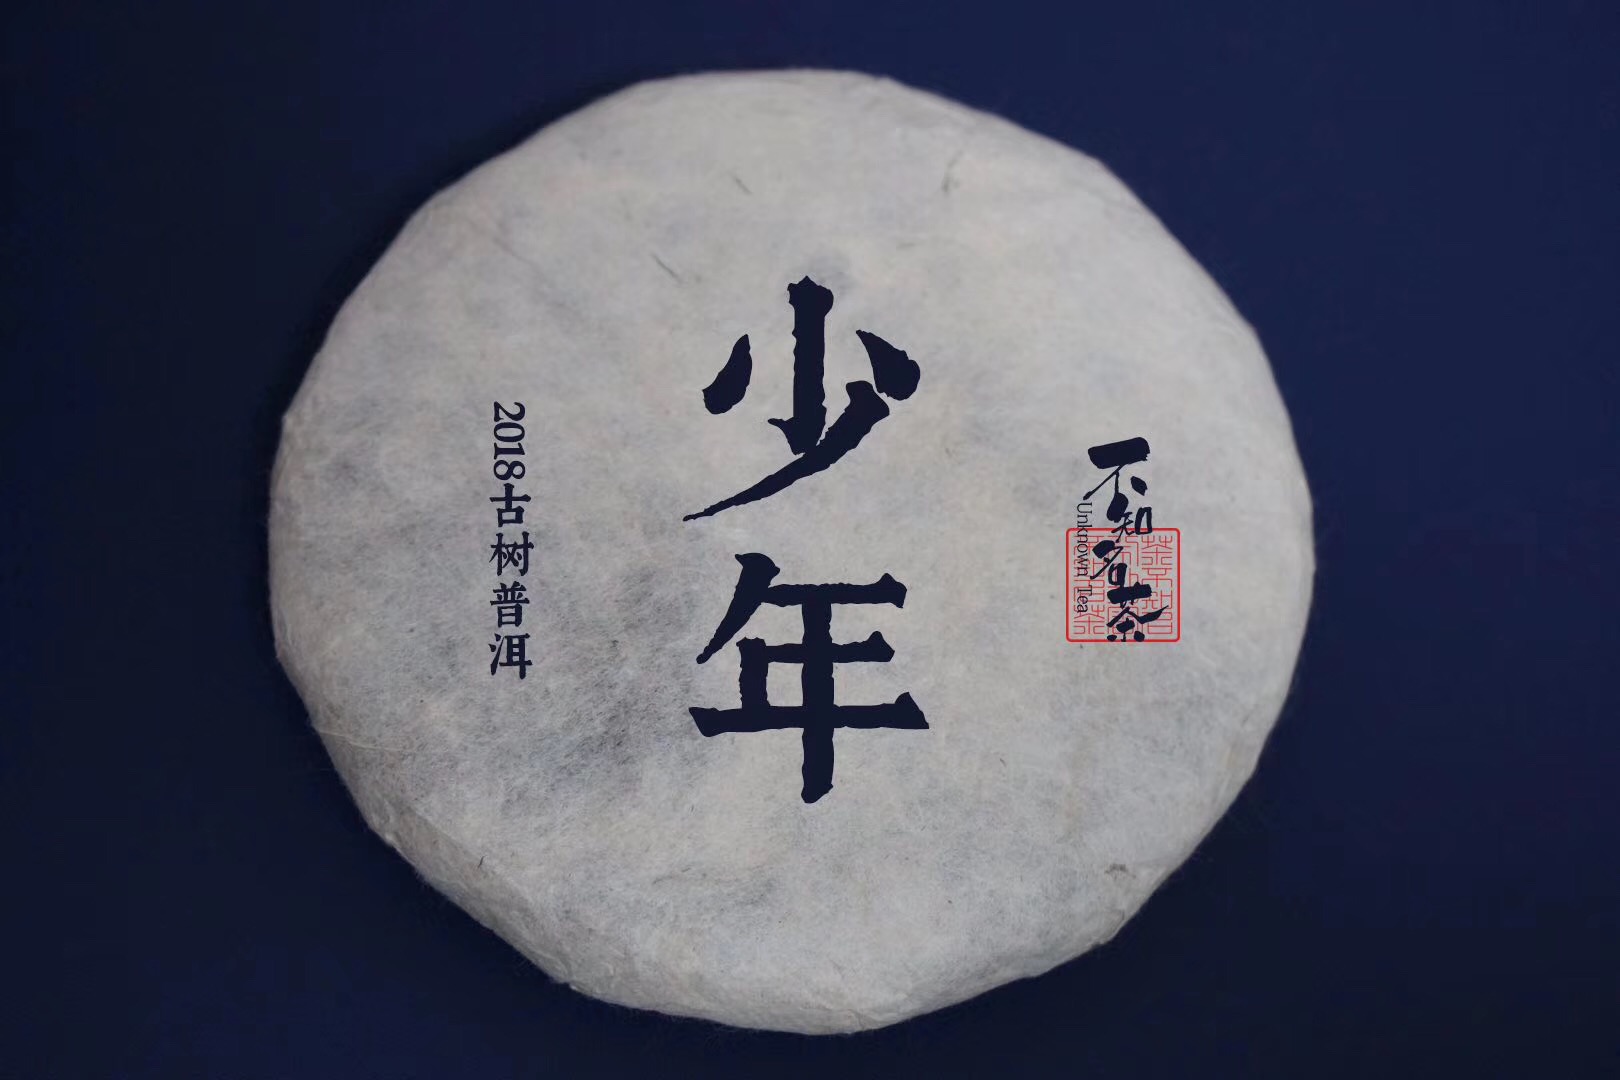 不知名茶
Unknown Tea
少年
2018古树普洱